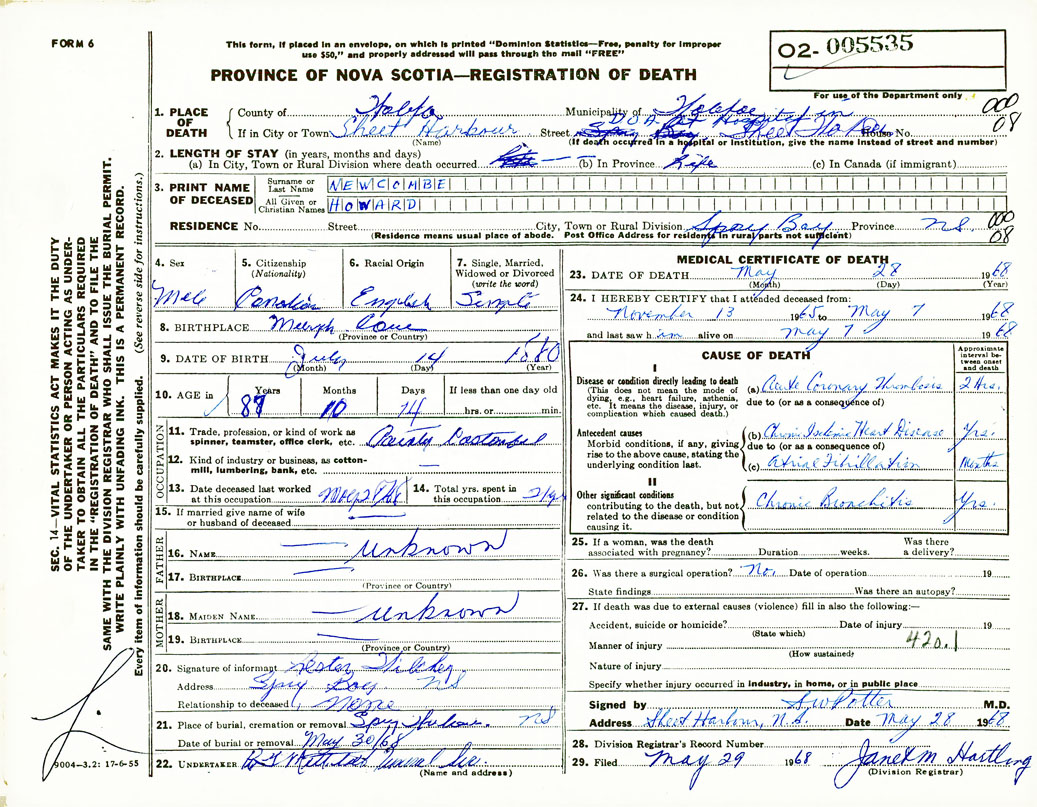 FORM 6
This form, if placed in an envelope, on which is printed "Dominion Statistics—Free, penalty for improper
use $50," and properly addressed will pass through the mail "FREE"
PROVINCE OF NOVA SCOTIA—REGISTRATION OF DEATH
02- 005535
For use of the Department only
000
08
1. PLACE OF DEATH
County of Halifax Municipality of Halifax
If in City or Town Sheet Harbour Street D O A at Hospital in Sheet Harbour House No.
(Name) (If death occurred in a hospital or institution, give the name instead of street and number)
2. LENGTH OF STAY (in years, months and days)
(a) In City, Town or Rural Division where death occurred — (b) In Province Life (c) In Canada (if immigrant)
3. PRINT NAME OF DECEASED
Surname or Last Name NEWCOMBE
All Given or Christian Names HOWARD
RESIDENCE No. Street City, Town or Rural Division Spry Bay Province N S.
(Residence means usual place of abode. Post Office Address for residents in rural parts not sufficient)
000
08
SEC. 14—VITAL STATISTICS ACT MAKES IT THE DUTY
OF THE UNDERTAKER OR PERSON ACTING AS UNDER-
TAKER TO OBTAIN ALL THE PARTICULARS REQUIRED
IN THE "REGISTRATION OF DEATH" AND TO FILE THE
SAME WITH THE DIVISION REGISTRAR WHO SHALL ISSUE THE BURIAL PERMIT.
WRITE PLAINLY WITH UNFADING INK. THIS IS A PERMANENT RECORD.
Every item of information should be carefully supplied. (See reverse side for instructions.)
4. Sex
Male
5. Citizenship
(Nationality)
Canadian
6. Racial Origin
English
7. Single, Married,
Widowed or Divorced
(write the word)
Single
8. BIRTHPLACE Murphy Cove
(Province or Country)
9. DATE OF BIRTH July 14 1880
(Month) (Day) (Year)
10. AGE in
Years Months Days If less than one day old
87 10 14 hrs. or min.
OCCUPATION
11. Trade, profession, or kind of work as
spinner, teamster, office clerk, etc.
12. Kind of industry or business, as cotton-
mill, lumbering, bank, etc. —
13. Date deceased last worked
at this occupation
14. Total yrs. spent in
this occupation
15. If married give name of wife
or husband of deceased —
FATHER
16. NAME — Unknown
17. BIRTHPLACE —
(Province or Country)
MOTHER
18. MAIDEN NAME — Unknown
19. BIRTHPLACE —
(Province or Country)
20. Signature of informant
Address Spry Bay NS
Relationship to deceased None
21. Place of burial, cremation or removal Spry NS
Date of burial or removal May 30/68
22. UNDERTAKER
(Name and address)
9004—3.2: 17-6-55
MEDICAL CERTIFICATE OF DEATH
23. DATE OF DEATH May 28 1968
(Month) (Day) (Year)
24. I HEREBY CERTIFY that I attended deceased from:
November 13 1965 to May 7 1968
and last saw him alive on May 7 1968
CAUSE OF DEATH
Approximate
interval be-
tween onset
and death
I
Disease or condition directly leading to death
(This does not mean the mode of
dying, e.g., heart failure, asthenia,
etc. It means the disease, injury, or
complication which caused death.)
(a) Acute Coronary Thrombosis 2 Hrs.
due to (or as a consequence of)
Antecedent causes
Morbid conditions, if any, giving
rise to the above cause, stating the
underlying condition last.
(b) Chronic Ischemic Heart Disease Yrs.
due to (or as a consequence of)
(c) Atrial Fibrillation Months
II
Other significant conditions
contributing to the death, but not
related to the disease or condition
causing it.
Chronic Bronchitis Yrs.
25. If a woman, was the death
associated with pregnancy? Duration weeks. Was there
a delivery?
26. Was there a surgical operation? No. Date of operation 19
State findings Was there an autopsy?
27. If death was due to external causes (violence) fill in also the following:—
Accident, suicide or homicide? Date of injury 19
(State which)
Manner of injury 420.1
(How sustained)
Nature of injury
Specify whether injury occurred in industry, in home, or in public place
Signed by S W Potter M.D.
Address Sheet Harbour, N.S. Date May 28 1968.
28. Division Registrar's Record Number
29. Filed May 29 1968 Janet M Hartling
(Division Registrar)